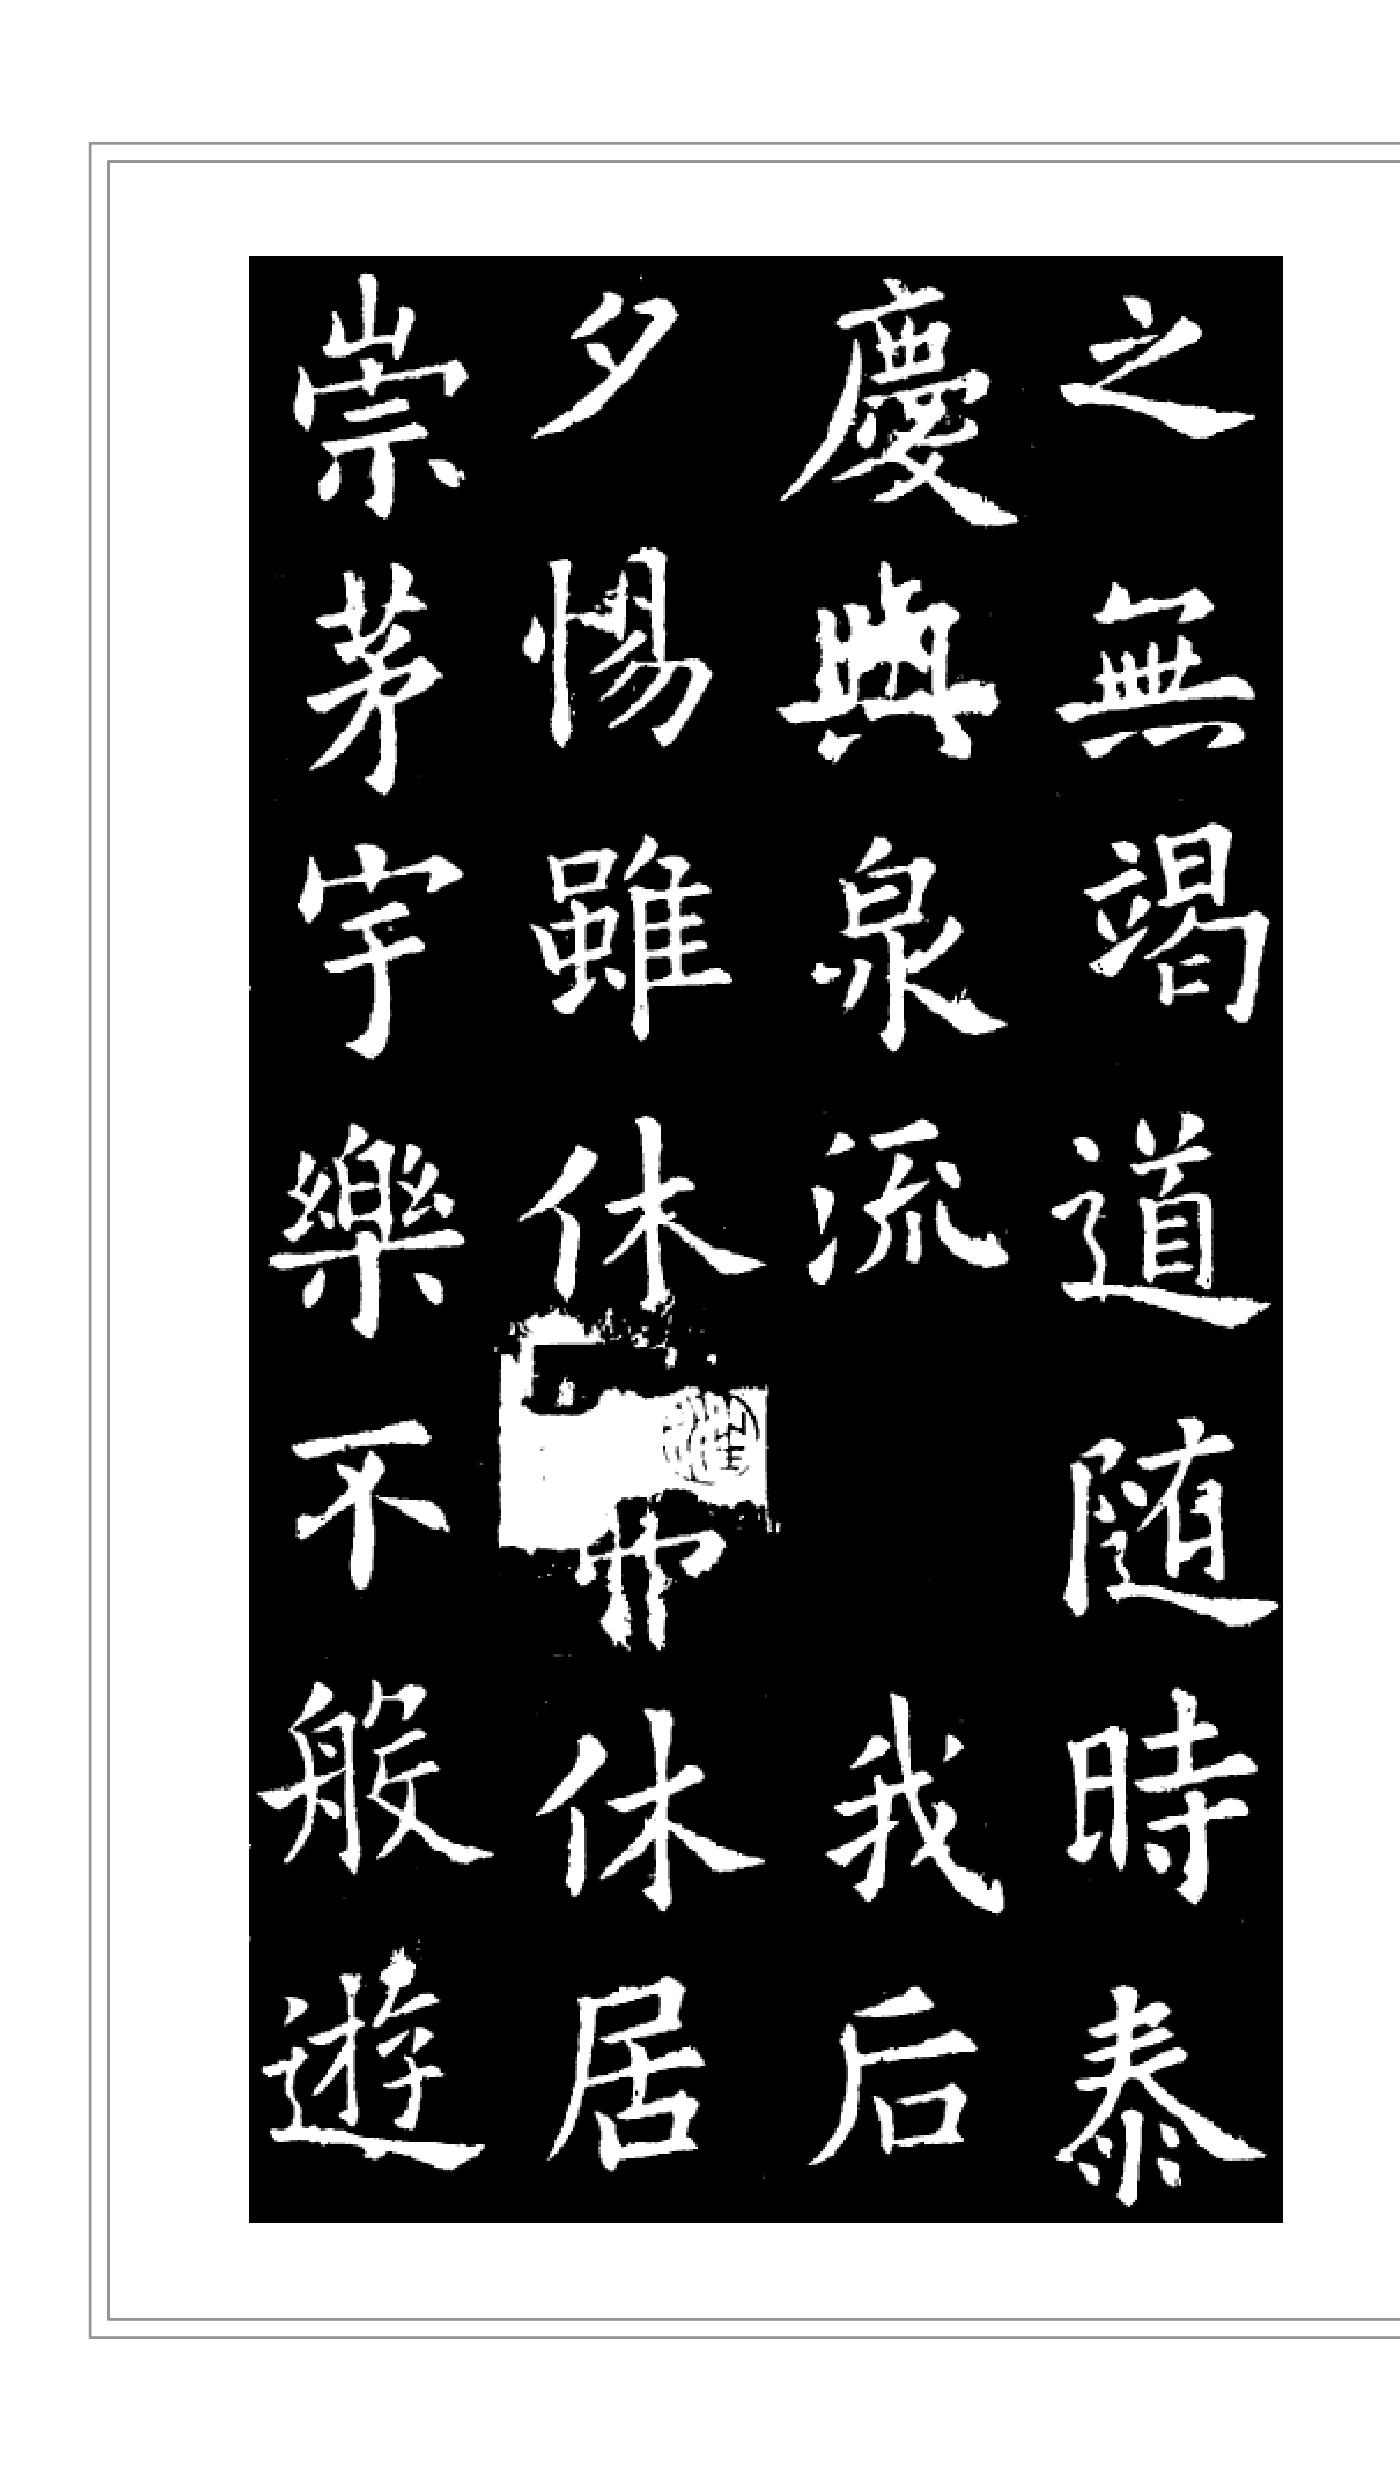 之無竭道随時泰
慶與泉流我后
夕惕雖休休居
崇茅宇樂不般遊